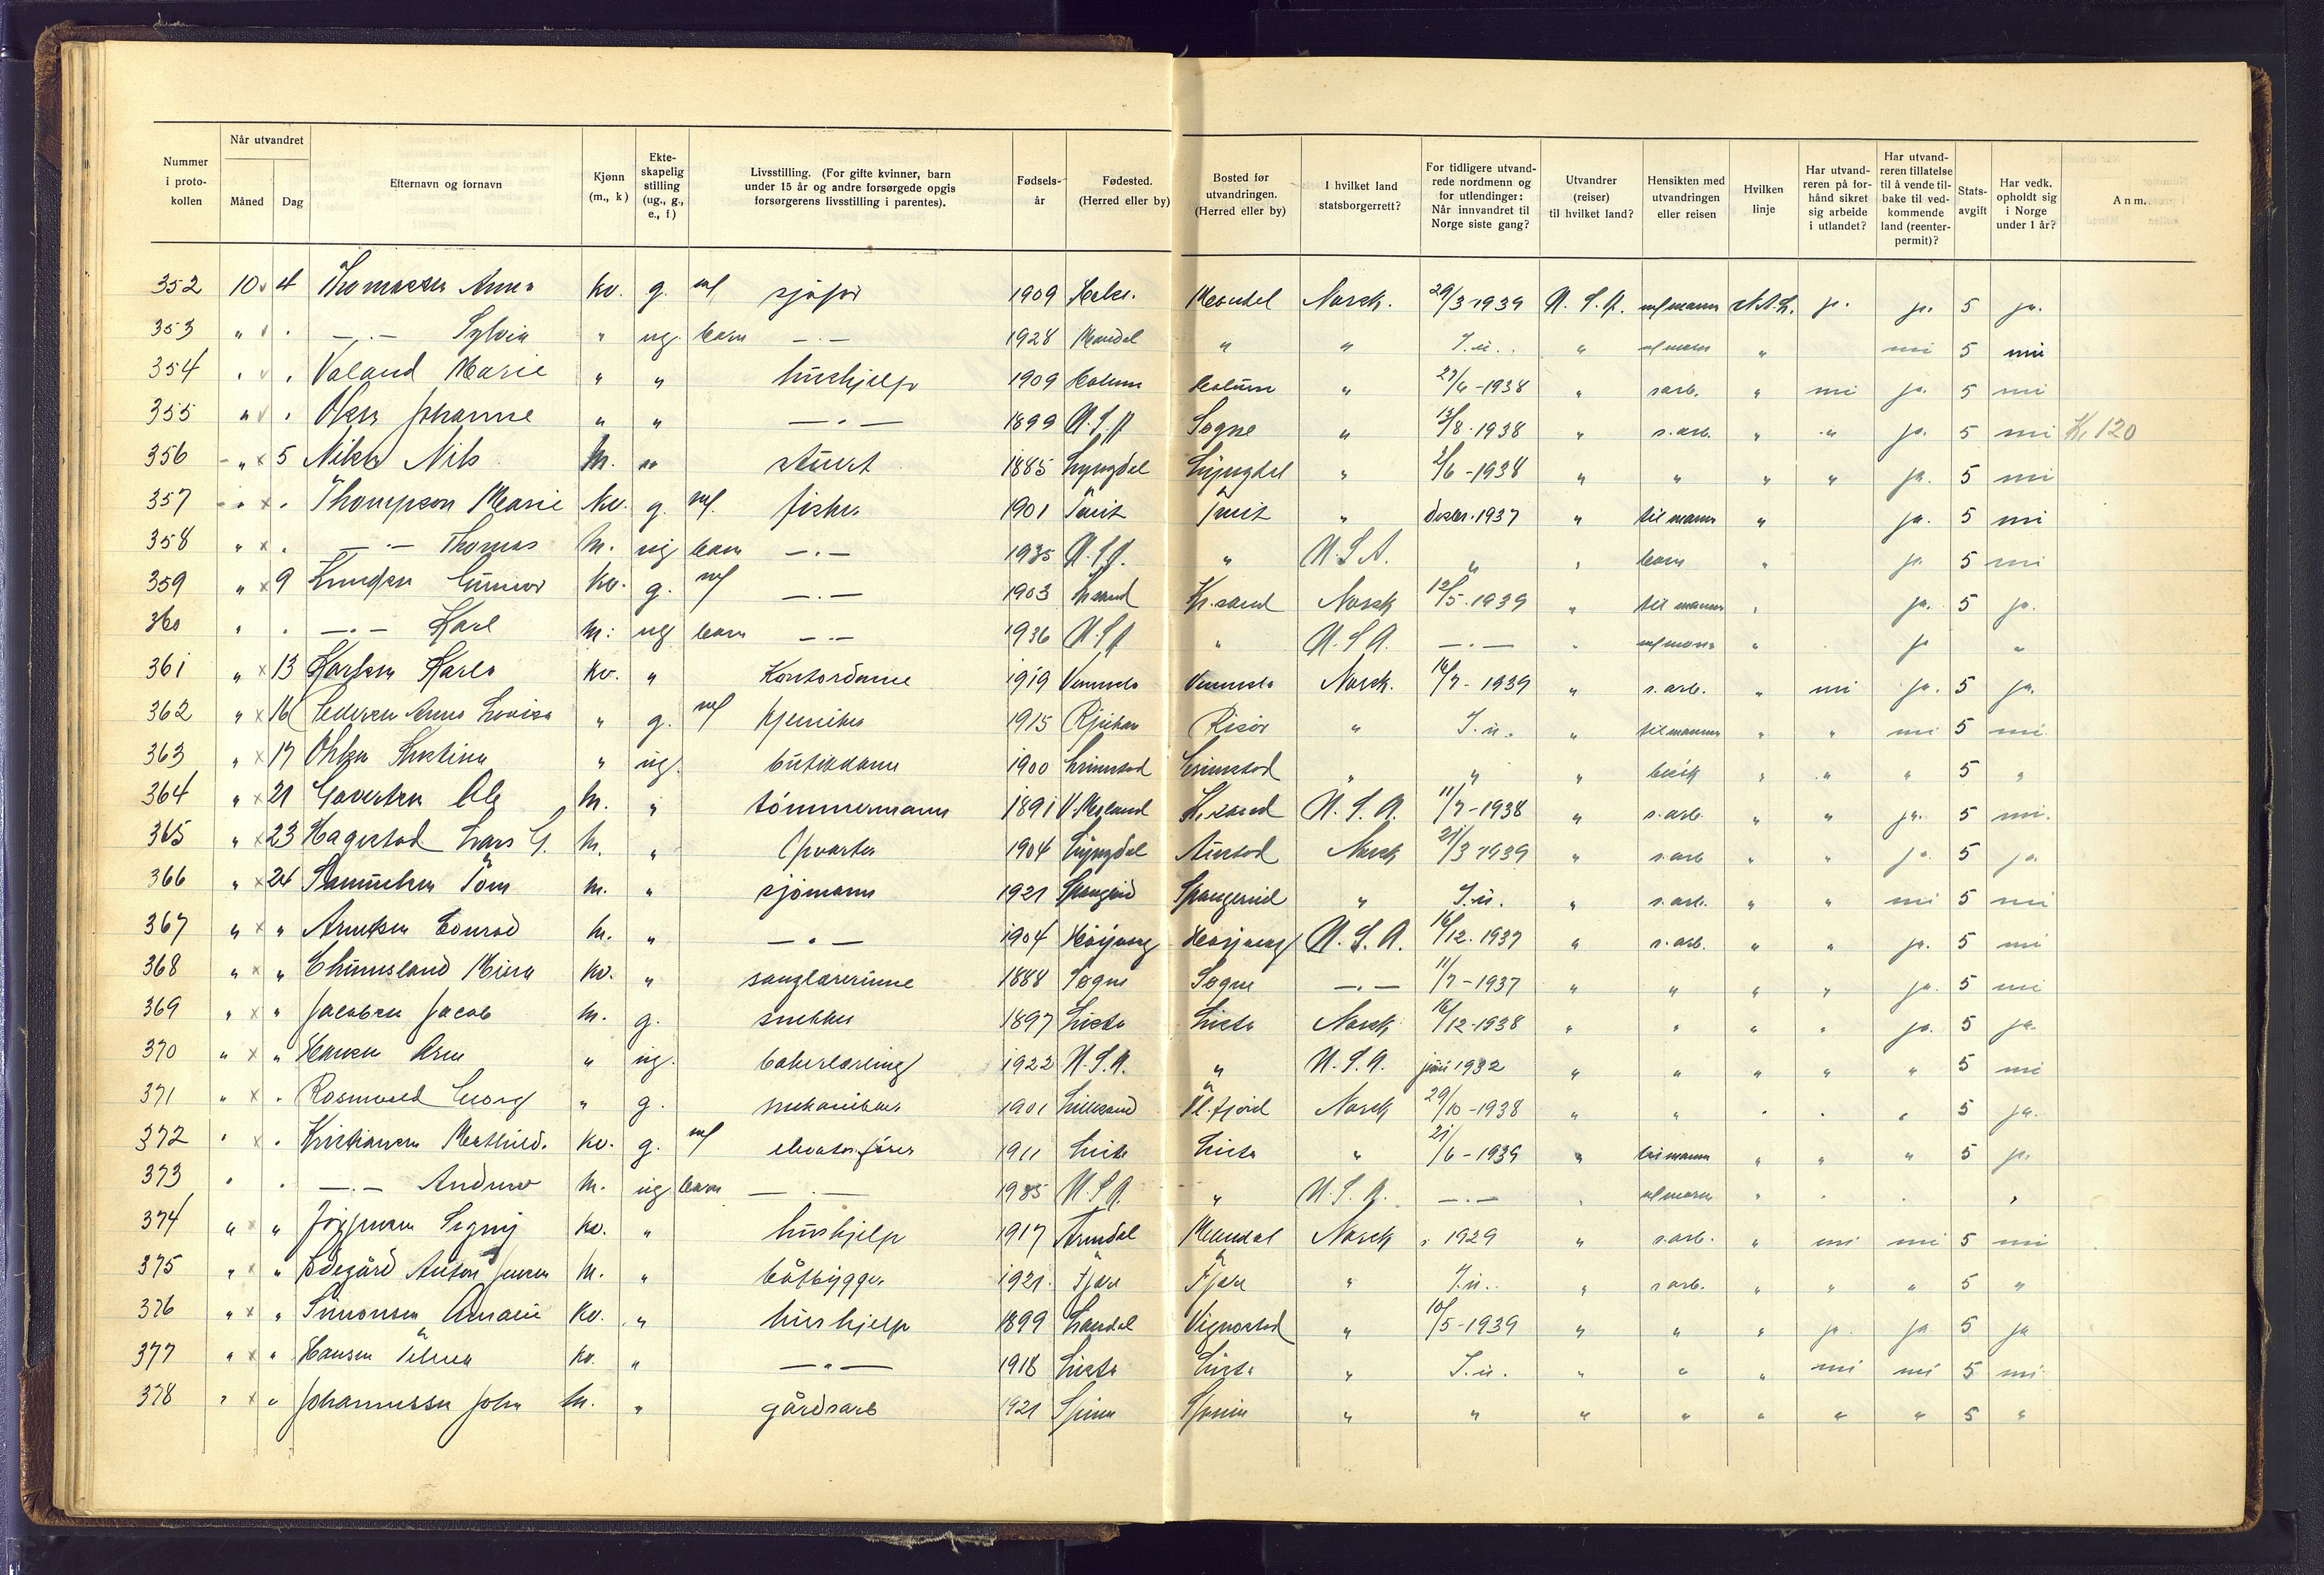 Nummer i proto-kollen | Når utvandret Måned Dag | Efternavn og fornavn | Kjønn (m., k) | Ekte-skapelig stilling (ug., g., e., f) | Livsstilling. (For gifte kvinner, barn under 15 år og andre forsørgede opgis forsørgerens livsstilling i parentes). | Fødsels-år | Fødested. (Herred eller by) | Bosted før utvandringen. (Herred eller by) | I hvilket land statsborgerrett? | For tidligere utvand-rede nordmenn og for utlendinger: Når innvandret til Norge siste gang? | Utvandrer (reiser) til hvilket land? | Hensikten med utvandringen eller reisen | Hvilken linje | Har utvand-reren på for-hånd sikret sig arbeide i utlandet? | Har utvand-reren tillatelse til å vende til-bake til ved-kommende land (reenter-permit)? | Stats-avgift | Har vedk. opholdt sig i Norge under 1 år? | Anm.
352 10 4 Anna kv. g. sjåfør 1909 Mandal Norsk. 29/3 1939 U.S.A. m/mann N.A.L. ja. ja. 5 ja.
353 " " —.— Sylvia " ug. barn —.— 1928 Mandal " " I.u. " " nei 5 nei
354 " " Valand Marie " " hushjelp 1909 Holum Holum " 27/6 - 1938 " s.arb. " nei ja. 5 nei
355 " " Olsen Johanne " " —"— 1899 U.S.A Søgne " 13/8. 1938 " s.arb. " " ja. 5 nei Kr 120
356 " 5 Nilsen Nils M. " stuert 1885 Lyngdal Lyngdal " 2/6 - 1938 " " " " ja. 5 nei
357 " " Thompson Marie kv. g. fisker 1901 Tveit Tveit " 1937 " til mann " ja. 5 nei
358 " " —.— Thomas M. ug barn —.— 1935 U.S.A. " U.S.A. " " barn " ja 5 nei
359 " 9 Knudsen Gunvor kv. g. —.— 1903 Kr.sand Kr.sand Norsk 12/5. 1939 " til mann " ja. 5 ja.
360 " " —.— Karl M. ug barn —.— 1936 U.S.A " U.S.A. —.— " " ja "
361 " 13 Karlsen Karla kv. " Kontordame 1919 Vennesla Vennesla Norsk. 1939 " s.arb. " nei ja. 5 ja.
362 " 16 Pedersen Anna Lovisa " g. kjemiker 1915 Rjukan Risør " I.u. " til mann " " nei 5 nei
363 " 17 Ohlsen Kristina " ug. butikkdame 1900 Grimstad Grimstad " " " besøk " " " 5 "
364 " 21 M. " tømmermann 1891 Kr.sand U.S.A. 11/7 - 1938 " s.arb. " " ja. 5 nei.
365 " 23 Hagestad Lars G. M. " 1904 Lyngdal Austad Norsk 21/3 1939 " s.arb " " ja. 5 ja.
366 " 24 Samuelsen Tom M. " sjømann 1921 Spangereid Spangereid " I.u. " s.arb. " " nei 5 nei
367 " " Arnesen Conrad M. " —"— 1904 U.S.A. 16/12. 1937 " s.arb. " " ja. 5 nei
368 " " kv. " sanglærerinne 1888 Søgne Søgne —.— 11/7 - 1937 " " " " ja. 5 nei
369 " " Jacobsen Jacob M. g. snekker 1897 Lista Lista Norsk 16/12-1938 " " " " ja. 5 ja.
370 " " Hansen Arne " ug. bakerlærling 1922 U.S.A. " U.S.A. juni 1932 " " " " " 5 nei
371 " " Rosenvold Georg " g. mekaniker 1901 Lillesand Norsk 29/10 - 1938 " " " " " 5 ja.
372 " " Kristiansen Mathild. kv. g. elevatorfører 1911 Lista Lista " 21/6 - 1939 " til mann " " " 5 ja.
373 " " —.— Andrew M. ug barn —.— 1935 U.S.A " U.S.A. —.— " " " " "
374 " " Signy kv. " hushjelp 1917 Arendal Mandal Norsk " 1929 " s.arb. " nei nei 5 nei
375 " " Ødegård Anton Jensen M. " båtbygger 1921. Fjære Fjære " I.u. " s.arb. " " " 5 "
376 " " Simonsen Amalie kv. " hushjelp 1899 Laudal Vigmostad " 10/5 - 1939 " " " ja. ja 5 ja
377 " " Hansen Telma kv. " —"— 1918 Lista Lista " I.u. " " " nei nei 5 nei
378 " " Johannessen John M. " gårdsarb 1921 Spind Spind " " " " " " " 5 "